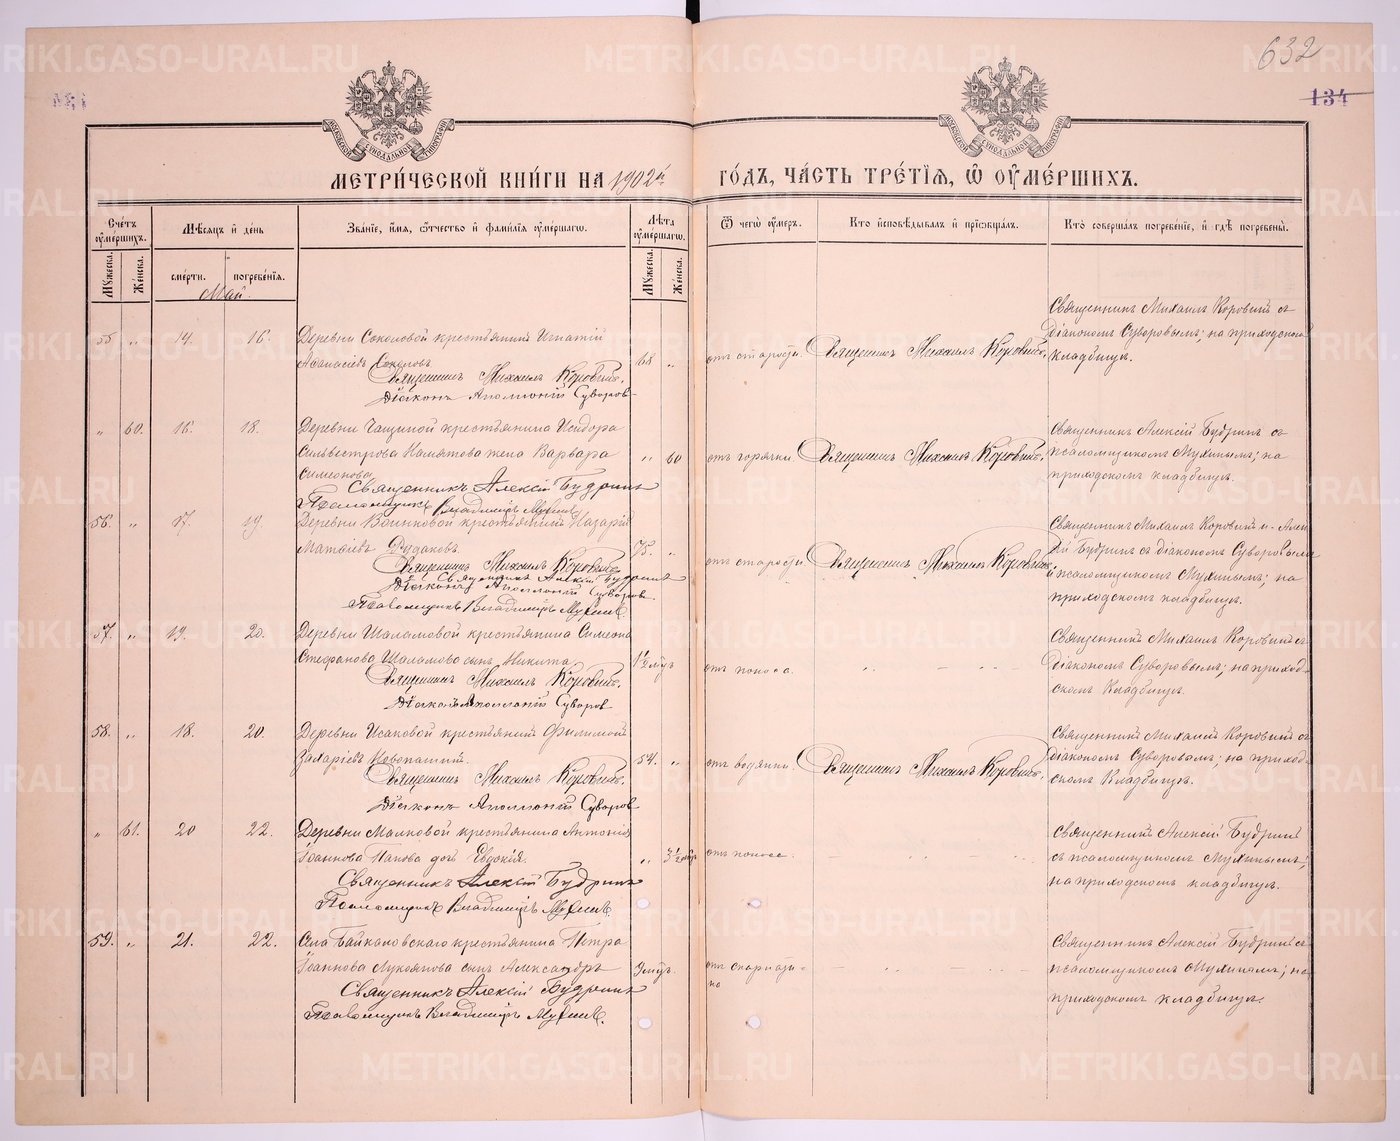 632
134
МЕТРИ́ЧЕСКОЙ КНИ́ГИ НА 1902й ГО́ДЪ, ЧА́СТЬ ТРЕ́ТІЯ, Ѡ ОУМЕ́РШИХЪ.
Сче́тъ оуме́ршихъ.
Мѣсяцъ и де́нь
Зва́ніе, и́мя, ѻ́тчество и фами́лія оуме́ршагѡ.
Лѣ́та оуме́ршагѡ.
Ѿ чегѡ̀ оу́меръ.
Кто̀ исповѣ́дывалъ и пріѡбща́лъ.
Кто̀ соверша́лъ погребе́ніе, и гдѣ̀ погребены̀.
Мꙋжеска.
Же́нска.
сме́рти.
погребе́нія.
Мꙋжеска.
Же́нска.
Май.
55 " 14. 16. Деревни Соколовой крестьянинъ Игнатій
Аѳанасіевъ Соколовъ. 68 "
Священникъ Михаилъ Коровинъ.
Діаконъ Аполлоній Суворовъ
отъ старости. Священникъ Михаилъ Коровинъ.
Священникъ Михаилъ Коровинъ съ
діакономъ Суворовымъ; на приходскомъ
кладбищѣ.
" 60. 16. 18. Деревни Чащиной крестьянина Исидора
Сильвестрова жена Варвара
Симеонова " 60
Священникъ Алексій Будринъ
Псаломщикъ Владиміръ Мухинъ
отъ горячки. Священникъ Михаилъ Коровинъ.
Священникъ Алексій Будринъ съ
псаломщикомъ Мухинымъ; на
приходскомъ кладбищѣ.
56. " 17. 19. Деревни крестьянинъ Назарій
Матѳіевъ Рудаковъ. 75. "
Священникъ Михаилъ Коровинъ
Священникъ Алексій Будринъ
Діаконъ Аполлоній Суворовъ
Псаломщикъ Владиміръ Мухинъ
отъ старости. Священникъ Михаилъ Коровинъ.
Священникъ Михаилъ Коровинъ и Алек-
сій Будринъ съ діакономъ Суворовымъ
и псаломщикомъ Мухинымъ; на
приходскомъ кладбищѣ.
57. " 19. 20. Деревни Шаламовой крестьянина Симеона
Стефанова Шаламова сынъ Никита 1½ мѣс.
Священникъ Михаилъ Коровинъ.
Діаконъ Аполлоній Суворовъ
отъ поноса.
Священникъ Михаилъ Коровинъ съ
діакономъ Суворовымъ; на приход-
скомъ кладбищѣ.
58. " 18. 20. Деревни Исаковой крестьянинъ Филимонъ
Захаріевъ Новопашинъ. 54. "
Священникъ Михаилъ Коровинъ.
Діаконъ Аполлоній Суворовъ
отъ водянки. Священникъ Михаилъ Коровинъ.
Священникъ Михаилъ Коровинъ съ
діакономъ Суворовымъ; на приход-
скомъ кладбищѣ.
" 61. 20 22. Деревни Малковой крестьянина Антонія
Іоаннова Попова дочь Евдокія. " 3½ мѣс.
Священникъ Алексій Будринъ
Псаломщикъ Владиміръ Мухинъ.
отъ поноса.
Священникъ Алексій Будринъ
съ псаломщикомъ Мухинымъ;
на приходскомъ кладбищѣ.
59. " 21. 22. Села Байкаловскаго крестьянина Петра
Іоаннова Лукоянова сынъ Александръ 9 мѣс.
Священникъ Алексій Будринъ
Псаломщикъ Владиміръ Мухинъ.
отъ скарлати-
на
Священникъ Алексій Будринъ съ
псаломщикомъ Мухинымъ; на
приходскомъ кладбищѣ.
METRIKI.GASO-URAL.RU